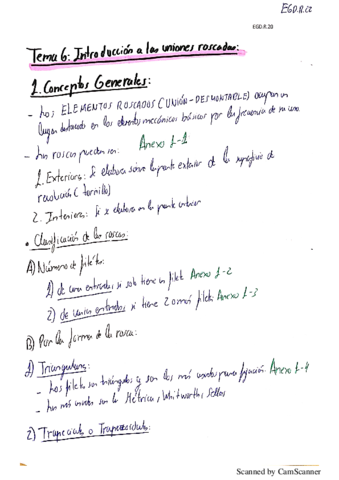 EGD.R.20
EGD.R.20
Tema 6: Introducción a las uniones roscadas:
1. Conceptos Generales:
- Los ELEMENTOS ROSCADOS (UNIÓN-DESMONTABLE) ocupan un
lugar destacado en los elementos mecánicos básicos por la frecuencia de su uso.
- Las roscas pueden ser: Anexo 1-1
1. Exteriores: Si elabora sobre la parte exterior de la superficie de
revolución (tornillo)
2. Interiores: Si se elabora en la parte interior
• Clasificación de las roscas:
A) Número de filetes:
1) de una entrada, si solo tiene un filete Anexo 1-2
2) de varias entradas, si tiene 2 o más filetes Anexo 1-3
B) Por la forma de la rosca:
1) Triangulares:
- Los filetes son triángulos y son los más usados para fijación. Anexo 1-4
- Las más usadas son la Métrica, Whitworth, Sellers
2) Trapeciales o Trapezoidales:
Scanned by CamScanner